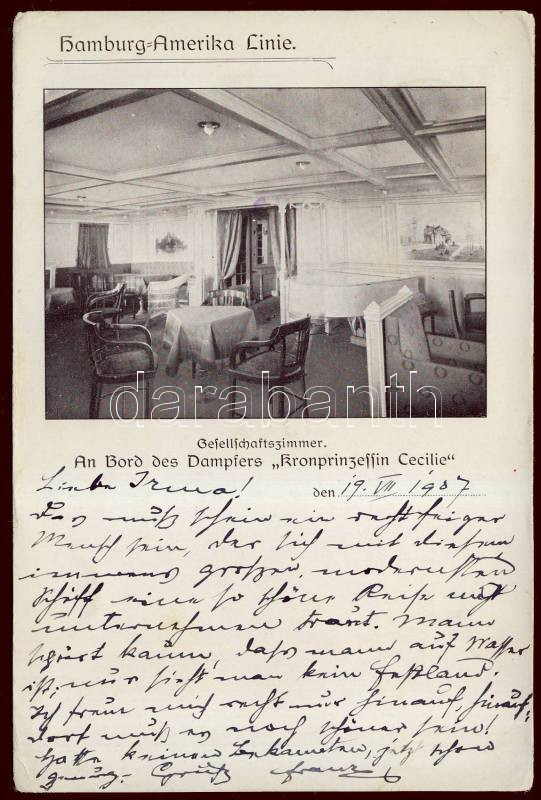 Hamburg-Amerika Linie.
darabanth
Gesellschaftszimmer.
An Bord des Dampfers „Kronprinzessin Cecilie“
Liebe Irma!
den 19. VII 1907
Das muß schon ein recht feiger
Mensch sein, der sich mit diesem
immens großen, modernsten
Schiff eine so schöne Reise nicht
unternehmen traut. Mann
spürt kaum, dass mann auf Wasser
ist, nur sieht man kein Festland.
Ich freue mich recht nur hinauf, hinauf,
dort muß es noch schöner sein!
Hatte keinen Bekannten, jetzt schon
genug. Grüße Franz